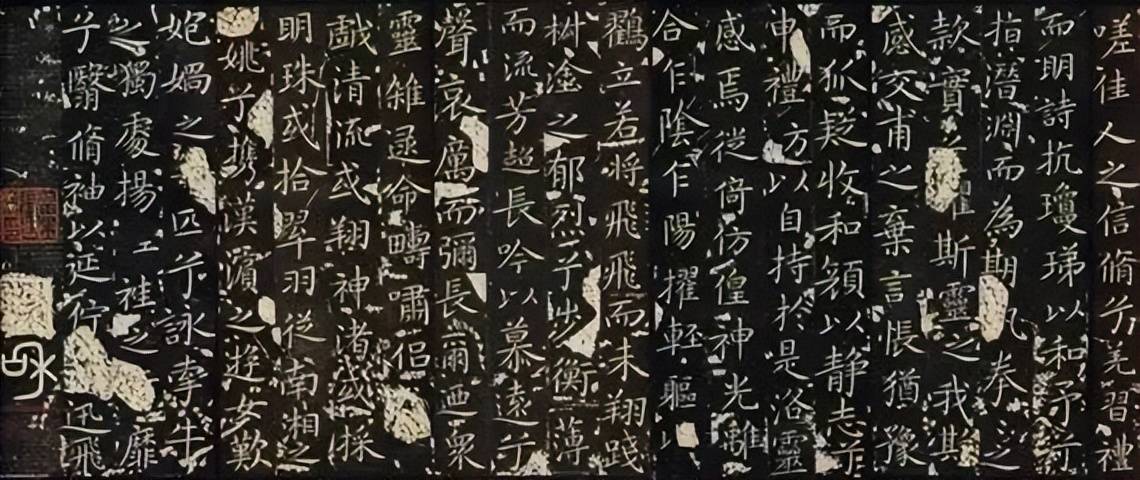 嗟佳人之信脩兮羌習禮
而明詩抗瓊珶以和予兮
指潛淵而為期拳之
款實斯靈之我欺
感交甫之棄言悵猶豫
而狐疑收和顏以静志兮
申禮方以自持於是洛靈
感焉徙倚仿偟神光離
合乍陰乍陽擢輕軀
鸖立若將飛飛而未翔踐
椒塗之郁烈兮步衡薄
而流芳超長吟以慕遠兮
聲哀厲而彌長爾迺衆
靈雜遝命疇嘯侣
戲清流或翔神渚或採
明珠或拾翠羽從南湘之
姚兮攜漢濱之遊女歎
媧之匹兮詠牽牛
之獨處揚袿之靡
兮翳脩袖以延佇迅飛